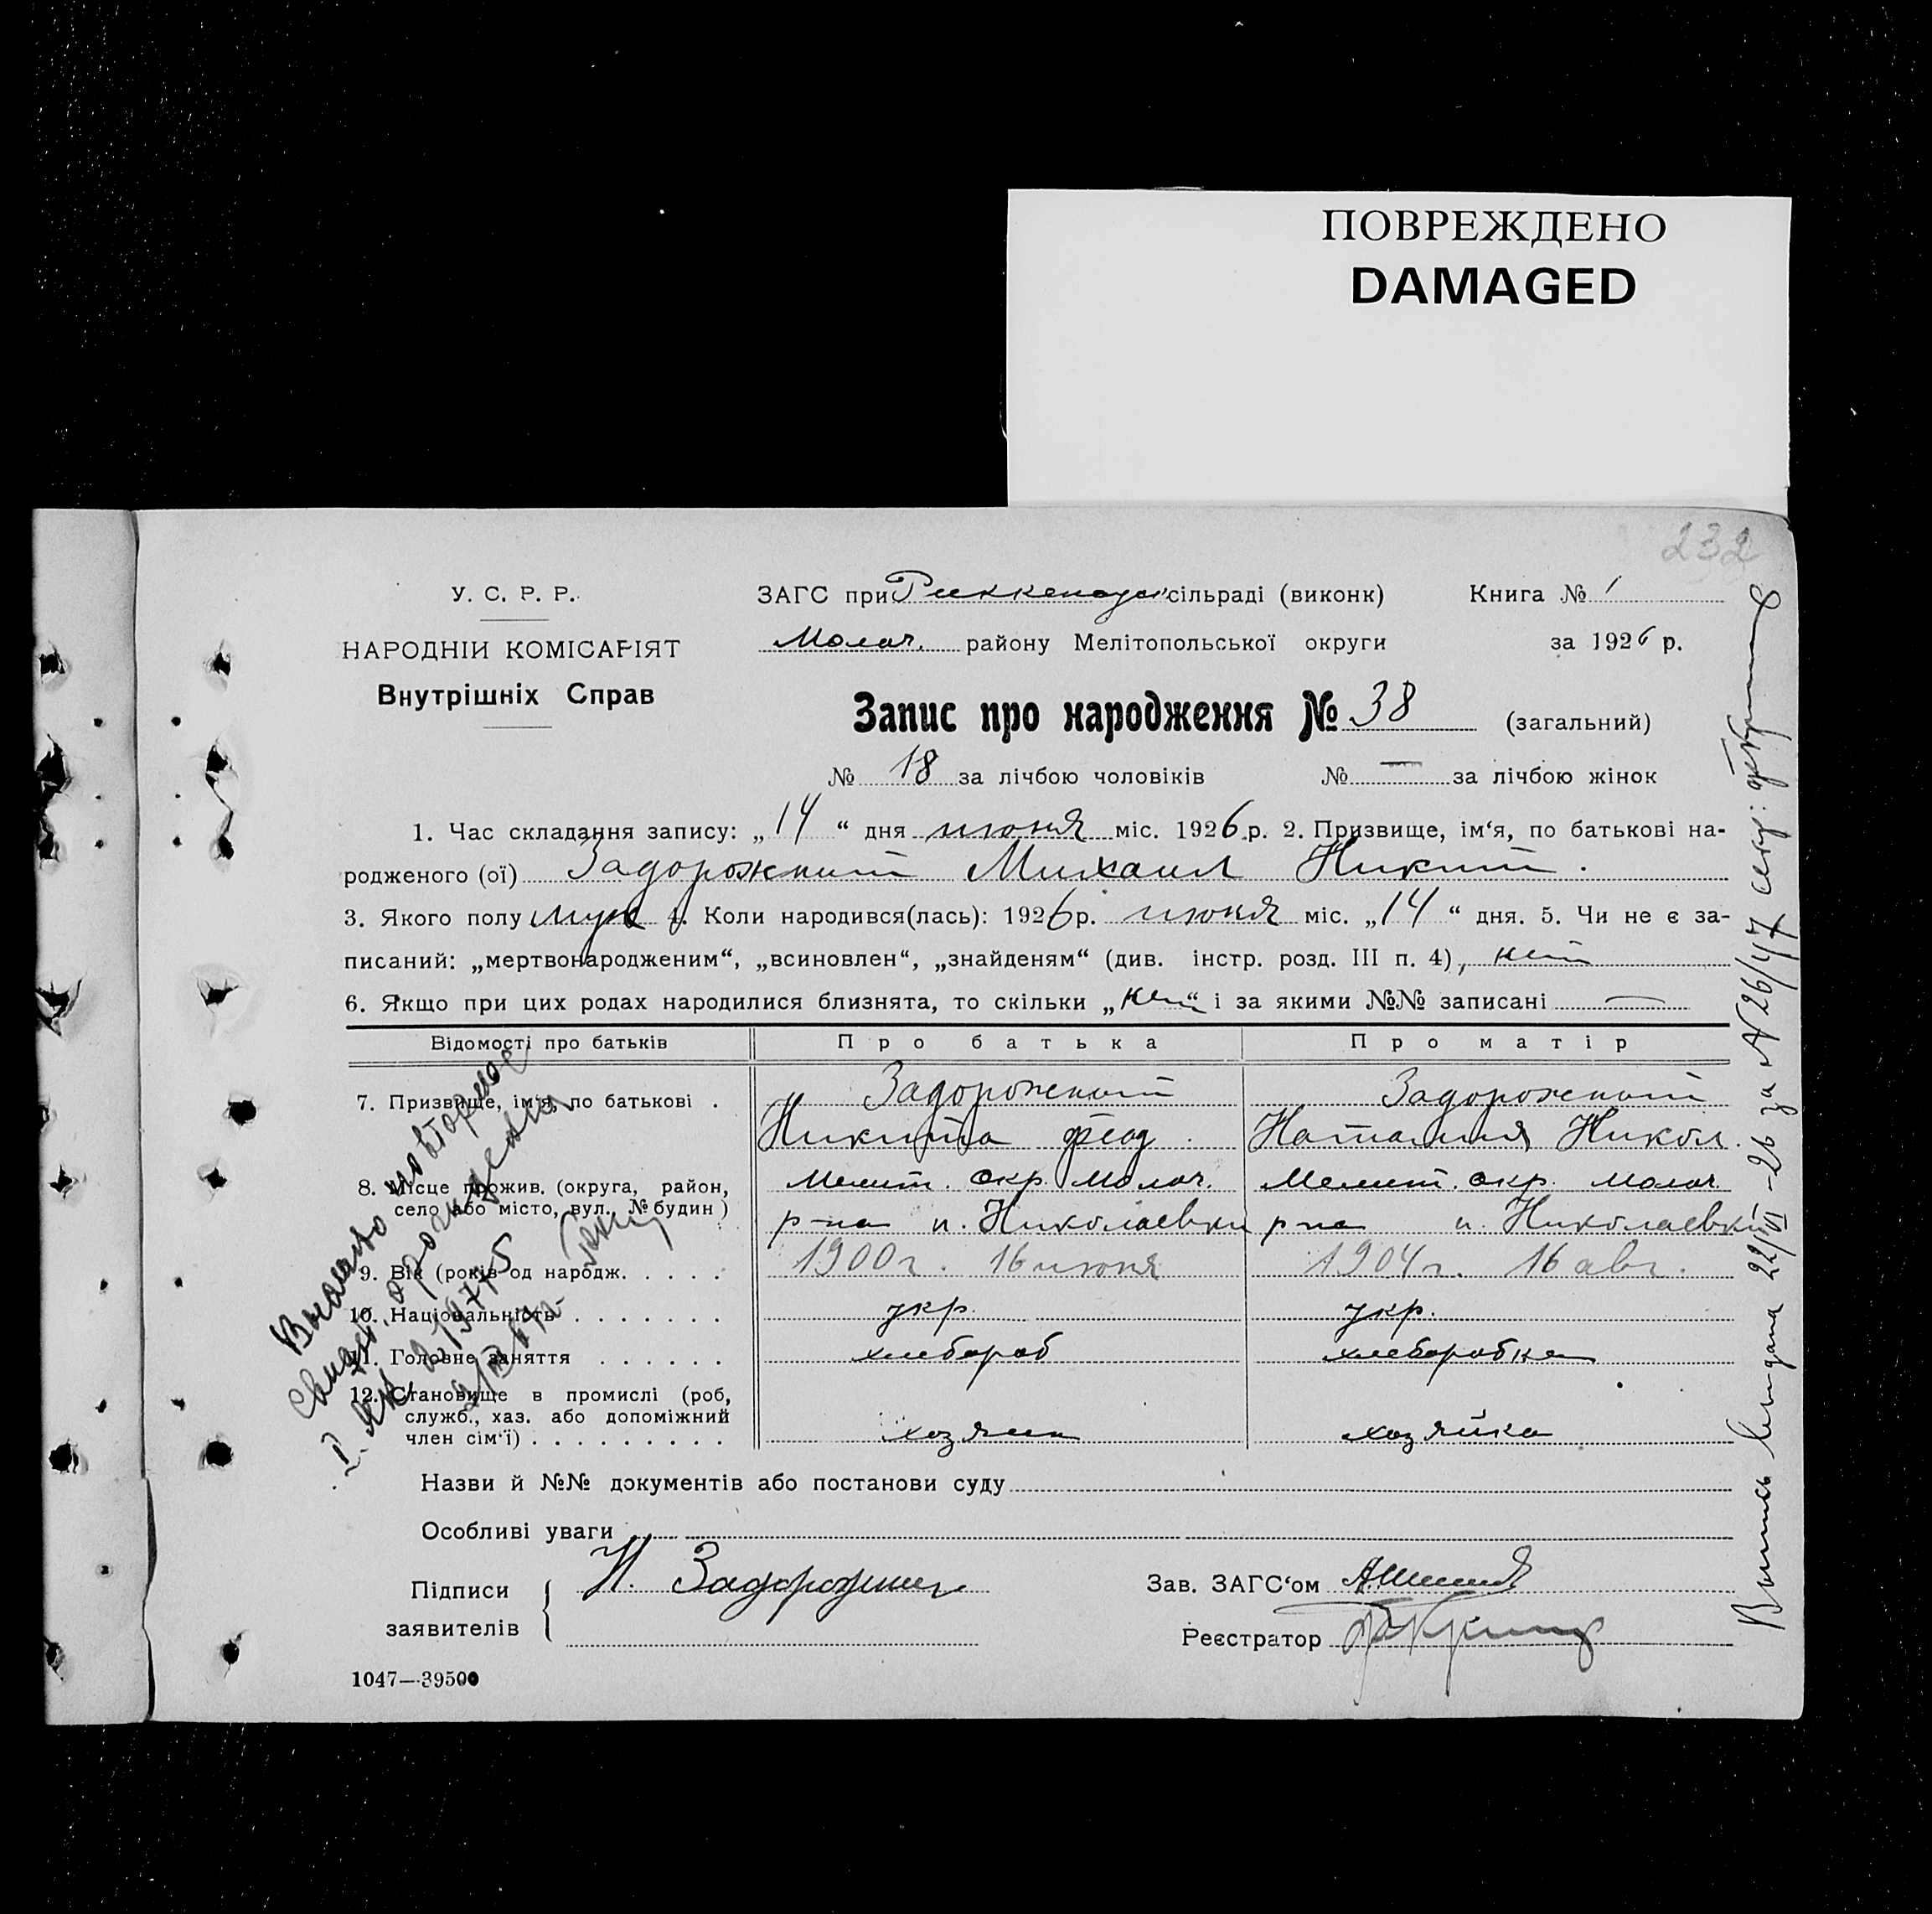 ПОВРЕЖДЕНО
DAMAGED
232
У. С. Р. Р.
НАРОДНІЙ КОМІСАРІЯТ
Внутрішніх Справ
ЗАГС при сільраді (виконк) Книга № 1
Молоч. району Мелітопольської округи за 1926 р.
Запис про народження № 38 (загальний)
№ 18 за лічбою чоловіків № — за лічбою жінок
1. Час складання запису: „14“ дня июня міс. 1926 р. 2. Призвище, ім‘я, по батькові на-
родженого (ої) Задорожний Михаил Никит.
3. Якого полу муж 4. Коли народився(лась): 1926 р. июня міс. „14“ дня. 5. Чи не є за-
писаний: „мертвонародженим“, „всиновлен“, „знайденям“ (див. інстр. розд. III п. 4), нет
6. Якщо при цих родах народилися близнята, то скільки „нет“ і за якими №№ записані —
Відомості про батьків Про батька Про матір
7. Призвище, ім‘я, по батькові . Задорожний Задорожний
Никита Феод. Наталия Никол.
8. Місце прожив. (округа, район, Мелит. окр. Молоч. Мелит. окр. Молоч.
село або місто, вул., № будин) р-на п. Николаевки р-на п. Николаевки
9. Вік (років од народж. . . . . . 1900 г. 16 июня 1904 г. 16 авг.
10. Національність . . . . . . . укр. укр.
11. Головне заняття . . . . . . хлебороб хлеборобка
12. Становище в промислі (роб,
служб., хаз. або допоміжний
член сім‘ї) . . . . . . . . . хозяин хозяйка
Назви й №№ документів або постанови суду
Особливі уваги
Підписи Н. Задорожний Зав. ЗАГС‘ом
заявителів Реєстратор
1047—39500
Выдано повторное
свид. о рождении
Выпись выдана 22/VI-26 за № 26/417 секр: